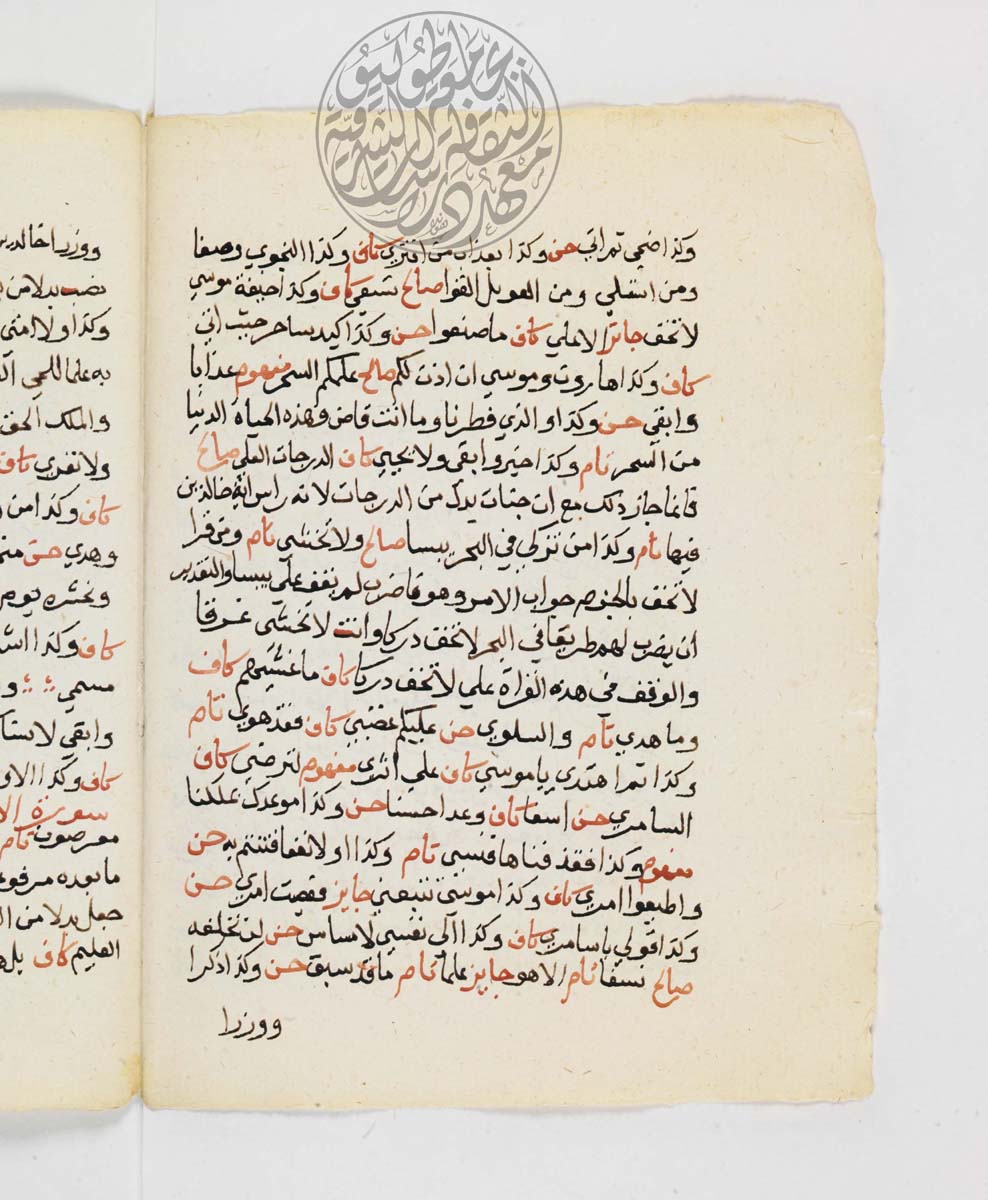 معهد دراسات الثقافة الشرقية
بجامعة طوكيو
وكذا ضحى ثم اتى حسن وكذا بعذاب من افترى كاف وكذا النجوى وصفا
ومن استعلى ومن القوا صالح تسعى كاف وكذا خيفة موسى
لا تخف جائز الاعلى كاف ما صنعوا حسن وكذا كيد ساحر حيث اتى
كاف وكذا هاروت وموسى ان اذن لكم صالح علمكم السحر مفهوم عذابا
وابقى حسن وكذا والذي فطرنا وما انت قاض وهذه الحياة الدنيا
من السحر تام وكذا خير وابقى ولا يحيى كاف الدرجات العلى صالح
فانما جاز ذلك مع ان جنات بدل من الدرجات لانه راس اية خالدين
فيها تام وكذا من تزكى في البحر يبسا صالح ولا تخشى تام ومن قرا
لا تخف بالجزم جواب الامر وهو فاضرب لم يقف على يبسا والتقدير
ان تضرب لهم طريقا في البحر لا تخف دركا وانت لا تخشى غرقا
والوقف في هذه القراة على لا تخف دركا كاف ما غشيهم كاف
وما هدى تام والسلوى حسن عليكم غضبي كاف فقد هوى تام
وكذا ثم اهتدى يا موسى كاف على اثرى مفهوم لترضى كاف
السامري حسن اسفا كاف وعدا حسنا حسن وكذا موعدك بملكنا
مفهوم وكذا فقذفناها فنسي تام وكذا ولا نفعا فتنتم به حسن
واطيعوا امري كاف وكذا موسى تتبعني جايز فعصيت امري حسن
وكذا قولي يا سامري كاف وكذا الى نفسي لا مساس حسن لن تخلفه
صالح نسفا تام الا هو جايز علما تام ما قد سبق حسن وكذا ذكرا
ووزرا
ووزرا خالدين
نصب بدلا من
وكذا ولا امتى
به علما للحي
والملك الحق
ولا تعرى كاف
كاف وكذا من
وهدى حسن
ونحشره يوم
كاف وكذا
مسمى
وابقى
كاف وكذا
سورة
معرضون تام
ما بعده مرفوعا
جعل بدلا من
العليم كاف بل